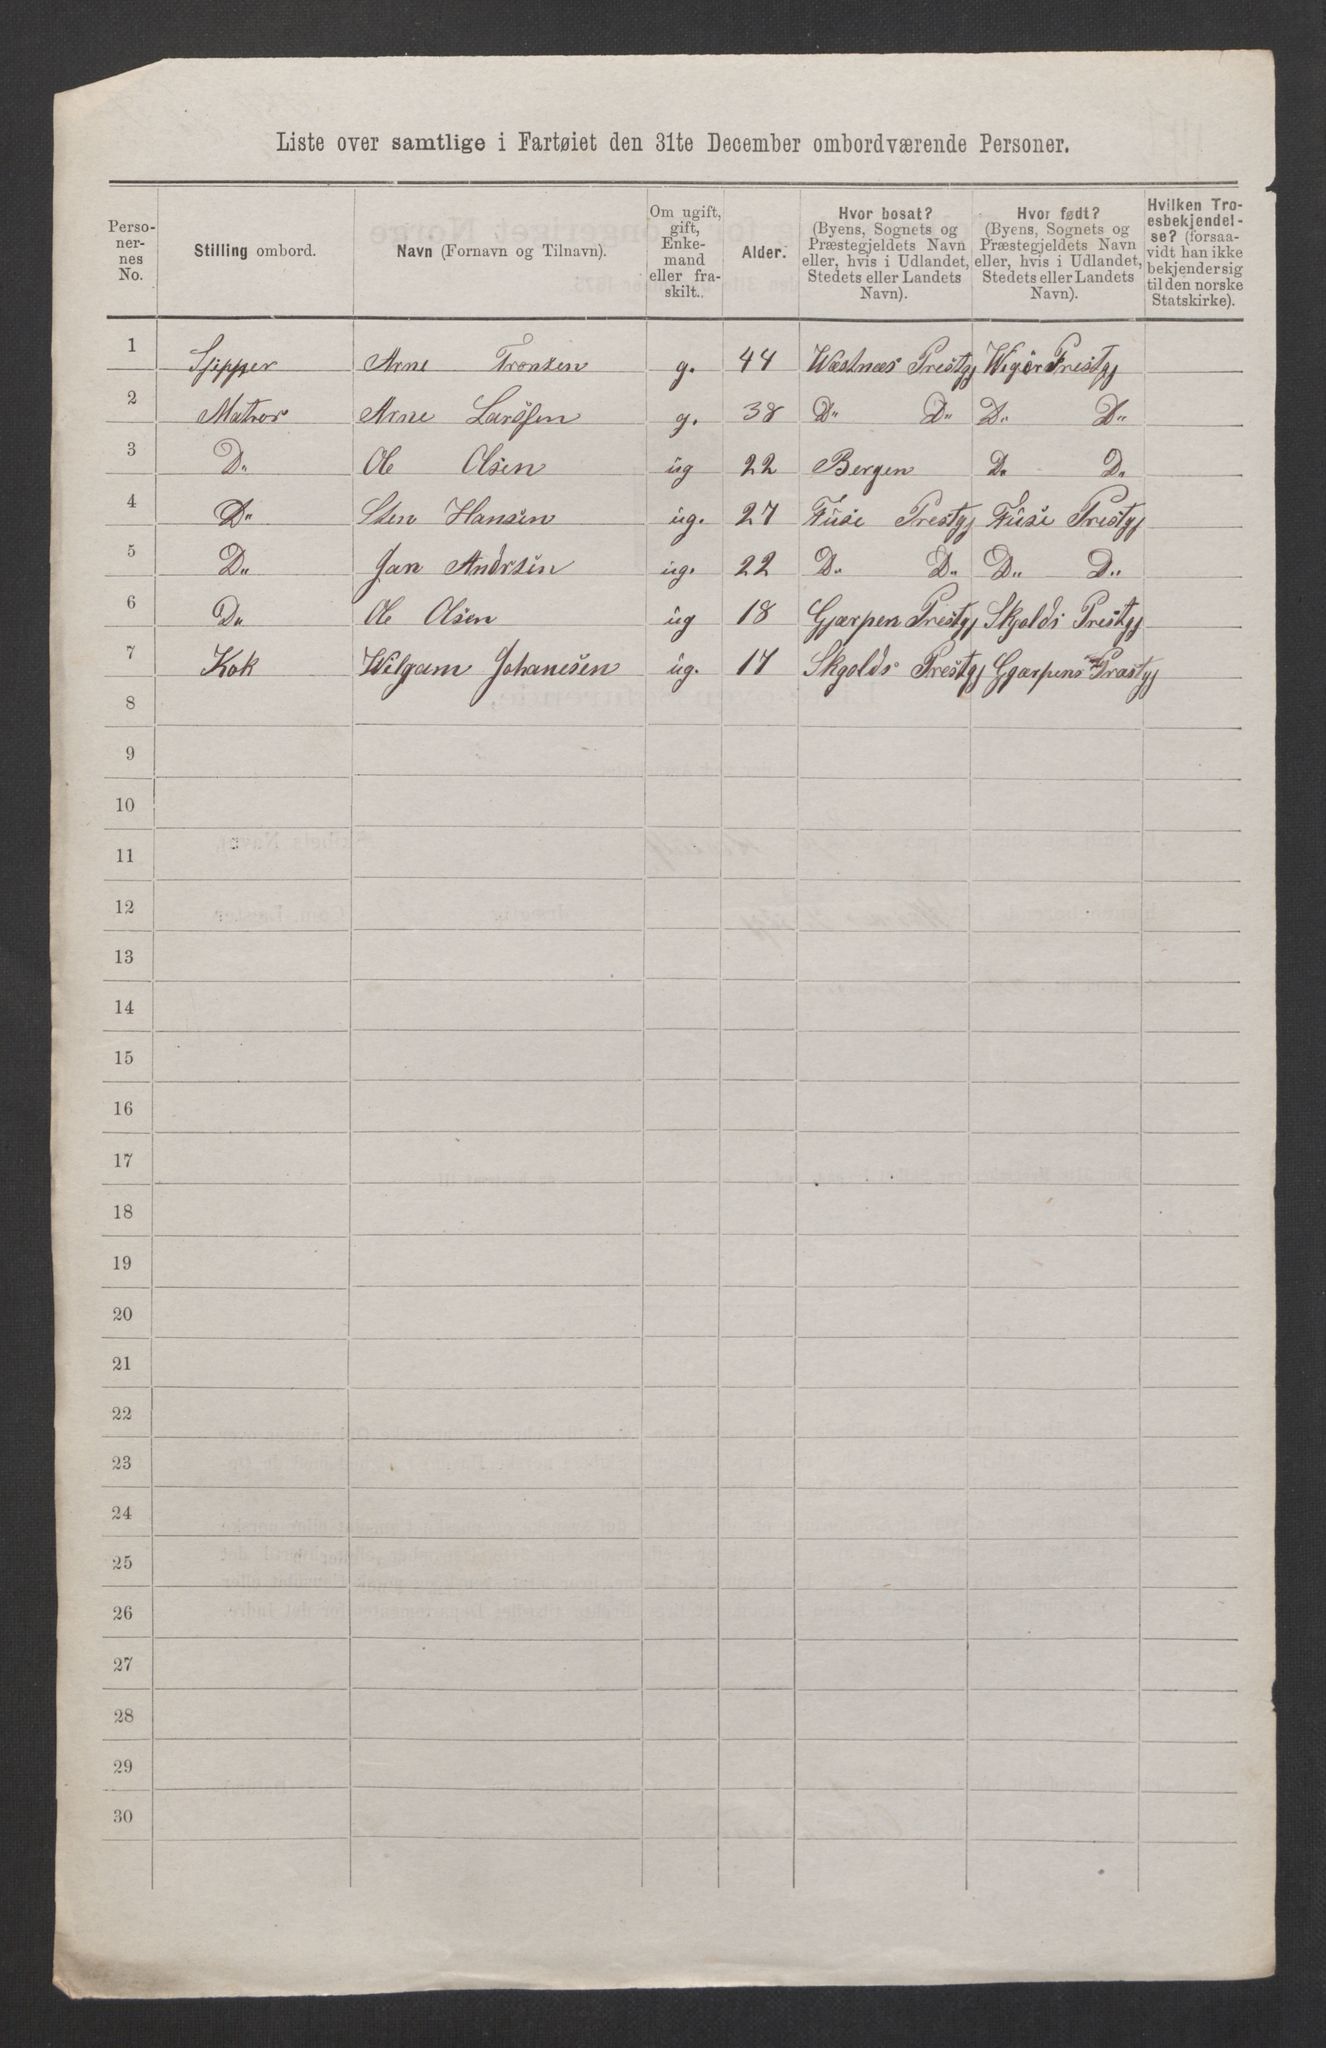 Liste over samtlige i Fartøiet den 31te December ombordværende Personer.
Perso-
ner-
nes
No.
Stilling ombord.
Navn (Fornavn og Tilnavn).
Om ugift,
gift,
Enke-
mand
eller fra-
skilt.
Alder.
Hvor bosat?
(Byens, Sognets og
Præstegjeldets Navn
eller, hvis i Udlandet,
Stedets eller Landets
Navn).
Hvor født?
(Byens, Sognets og
Præstegjeldets Navn
eller, hvis i Udlandet,
Stedets eller Landets
Navn).
Hvilken Tro-
esbekjendel-
se? (forsaa-
vidt han ikke
bekjender sig
til den norske
Statskirke).
1 Sjipper Arne Tronsen g. 44 Westnæs Prestgj Wigör Prestgj
2 Matros Arne Larssen g. 38 D" D" D" D"
3 D" Ole Olsen ug 22 Bergen D" D"
4 D" Sten Hansen ug. 27 Fuse Prestgj Fuse Prestgj
5 D" Jan Andrsen ug. 22 D" D" D" D"
6 D" Ole Olsen ug 18 Gjærpen Prestgj Skjolds Prestgj
7 Kok Wilgam Johanesen ug. 17 Skgolds Prestgj Ggærpens Prastgj
8
9
10
11
12
13
14
15
16
17
18
19
20
21
22
23
24
25
26
27
28
29
30